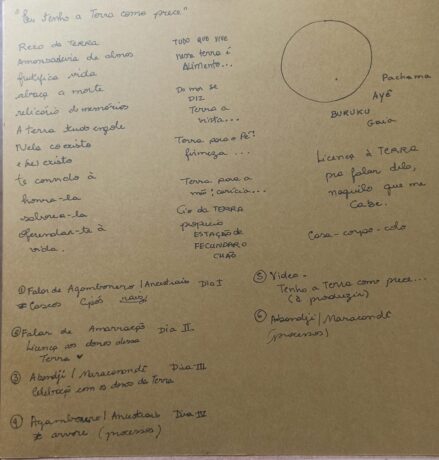 "Eu tenho a Terra como prece"
Rezo da TERRA
Amorosaderia de almas
frutifica vida
abraça a morte
relicário de memórios
A terra tudo engole
Nela coexisto
e Sei existo
te convido à
honra-la
saborea-la
oferendar-te à
vida.
TUDO QUE VIVE
nessa terra é
Alimento...
Do mar se
DIZ
Terra a
vista...
Terra para o Pé:
firmeza...
Terra para a
mão: carícia...
Cio da TERRA
propicia
ESTAÇÃO de
FECUNDAR O
CHÃO
Pachama
AYÊ
BURUKU
Gaia
Licença à TERRA
pra falar dela,
naquilo que me
Cabe.
Casa-corpo-colo
① Falar de Agambonero / Ancestrais Dia I
* Cascos Cipós raiz
② Falar de Amarração Dia II.
Licença aos donos dessa
Terra ♥
③ Abendji / Maracondê Dia III
Celebração com os donos da Terra
④ Agambonero / Ancestrais Dia IV
* arvore (processos)
⑤ Video -
Tenho a Terra como prece...
(à produzir)
⑥ Abendji / Maracondê
(processos)